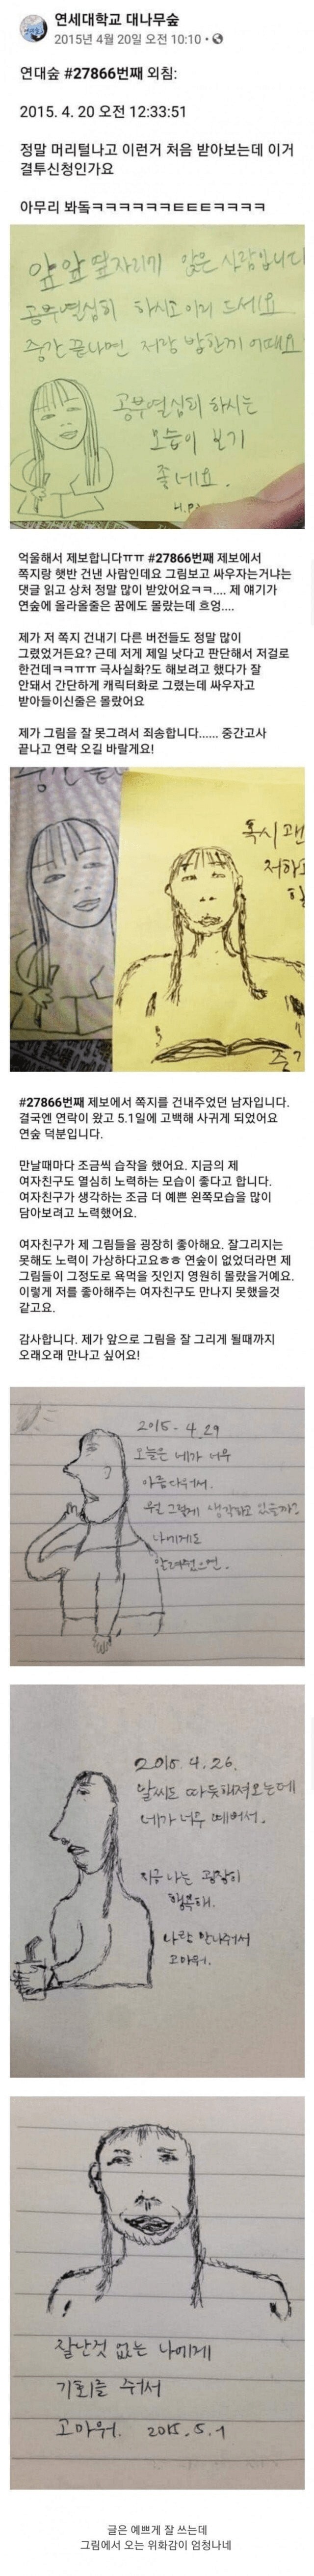 연세대학교 대나무숲
2015년 4월 20일 오전 10:10 ·
연대숲 #27866번째 외침:
2015. 4. 20 오전 12:33:51
정말 머리털나고 이런거 처음 받아보는데 이거
결투신청인가요
아무리 봐돜ㅋㅋㅋㅋㅋㅋㅌㅌㅌㅋㅋㅋㅋ
앞앞 옆자리에 앉은 사람입니다
공부열심히 하시고 이거 드세요
중간 끝나면 저랑 밥한끼 어때요
공부열심히 하시는
모습이 보기
좋네요.
억울해서 제보합니다ㅠㅠ #27866번째 제보에서
쪽지랑 햇반 건낸 사람인데요 그림보고 싸우자는거냐는
댓글 읽고 상처 정말 많이 받았어요ㅋㅋ.... 제 얘기가
연숲에 올라올줄은 꿈에도 몰랐는데 흐엉....
제가 저 쪽지 건내기 다른 버전들도 정말 많이
그렸었거든요? 근데 저게 제일 낫다고 판단해서 저걸로
한건데ㅋㅋㅠㅠ 극사실화? 도 해보려고 했다가 잘
안돼서 간단하게 캐릭터화로 그렸는데 싸우자고
받아들이신줄은 몰랐어요
제가 그림을 잘 못그려서 죄송합니다...... 중간고사
끝나고 연락 오길 바랄게요!
혹시 괜
저하
#27866번째 제보에서 쪽지를 건내주었던 남자입니다.
결국엔 연락이 왔고 5.1일에 고백해 사귀게 되었어요
연숲 덕분입니다.
만날때마다 조금씩 습작을 했어요. 지금의 제
여자친구도 열심히 노력하는 모습이 좋다고 합니다.
여자친구가 생각하는 조금 더 예쁜 왼쪽모습을 많이
담아보려고 노력했어요.
여자친구가 제 그림들을 굉장히 좋아해요. 잘그리지는
못해도 노력이 가상하다고요ㅎㅎ 연숲이 없었더라면 제
그림들이 그정도로 욕먹을 짓인지 영원히 몰랐을거예요.
이렇게 저를 좋아해주는 여자친구도 만나지 못했을것
같고요.
감사합니다. 제가 앞으로 그림을 잘 그리게 될때까지
오래오래 만나고 싶어요!
2015. 4.29
오늘은 네가 너무
아름다워서.
뭘 그렇게 생각하고 있을까?
나에게도
알려줬으면.
2015. 4. 26.
날씨도 따듯해져오는데
네가 너무 예뻐서.
지금 나는 굉장히
행복해.
나랑 만나줘서
고마워.
잘난것 없는 나에게
기회를 줘서
고마워. 2015. 5. 1
글은 예쁘게 잘 쓰는데
그림에서 오는 위화감이 엄청나네